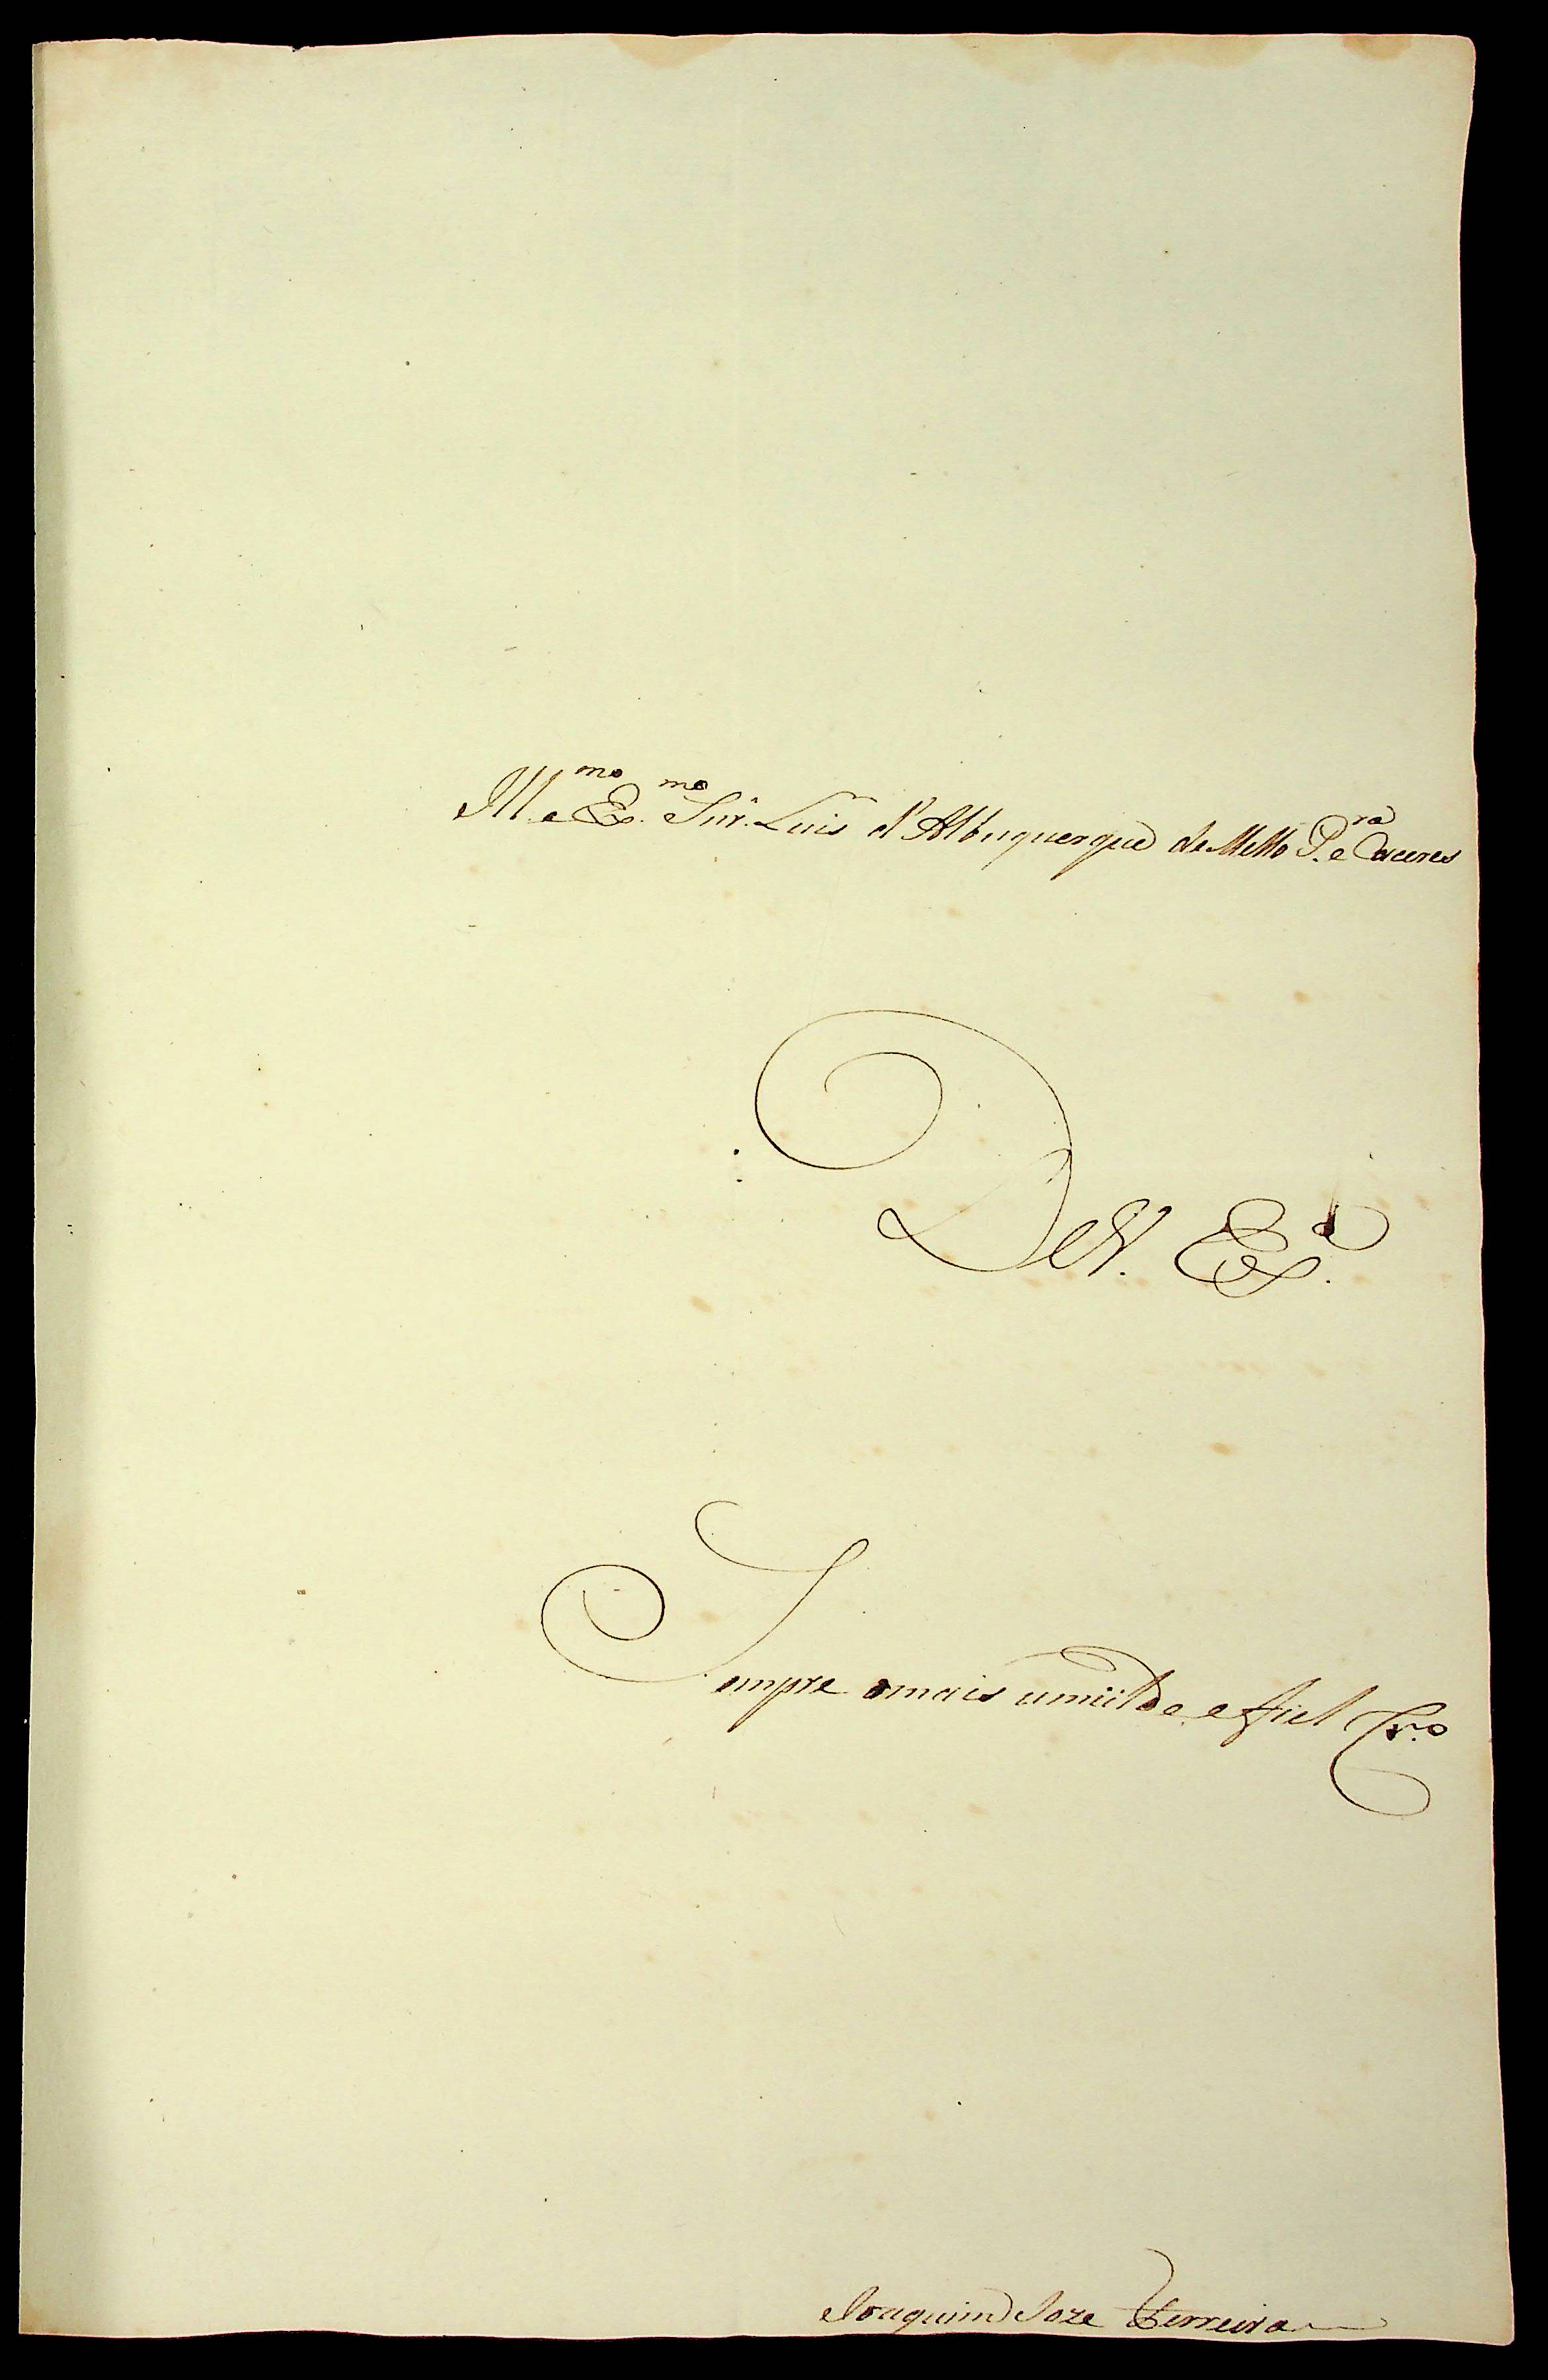 Ill.mo e Ex.mo Snr. Luis d'Albuquerque de Mello P.ra e Caceres
De V. Ex.a
Sempre omais umilde effiel Cr.o
Joaquim Joze Ferreira